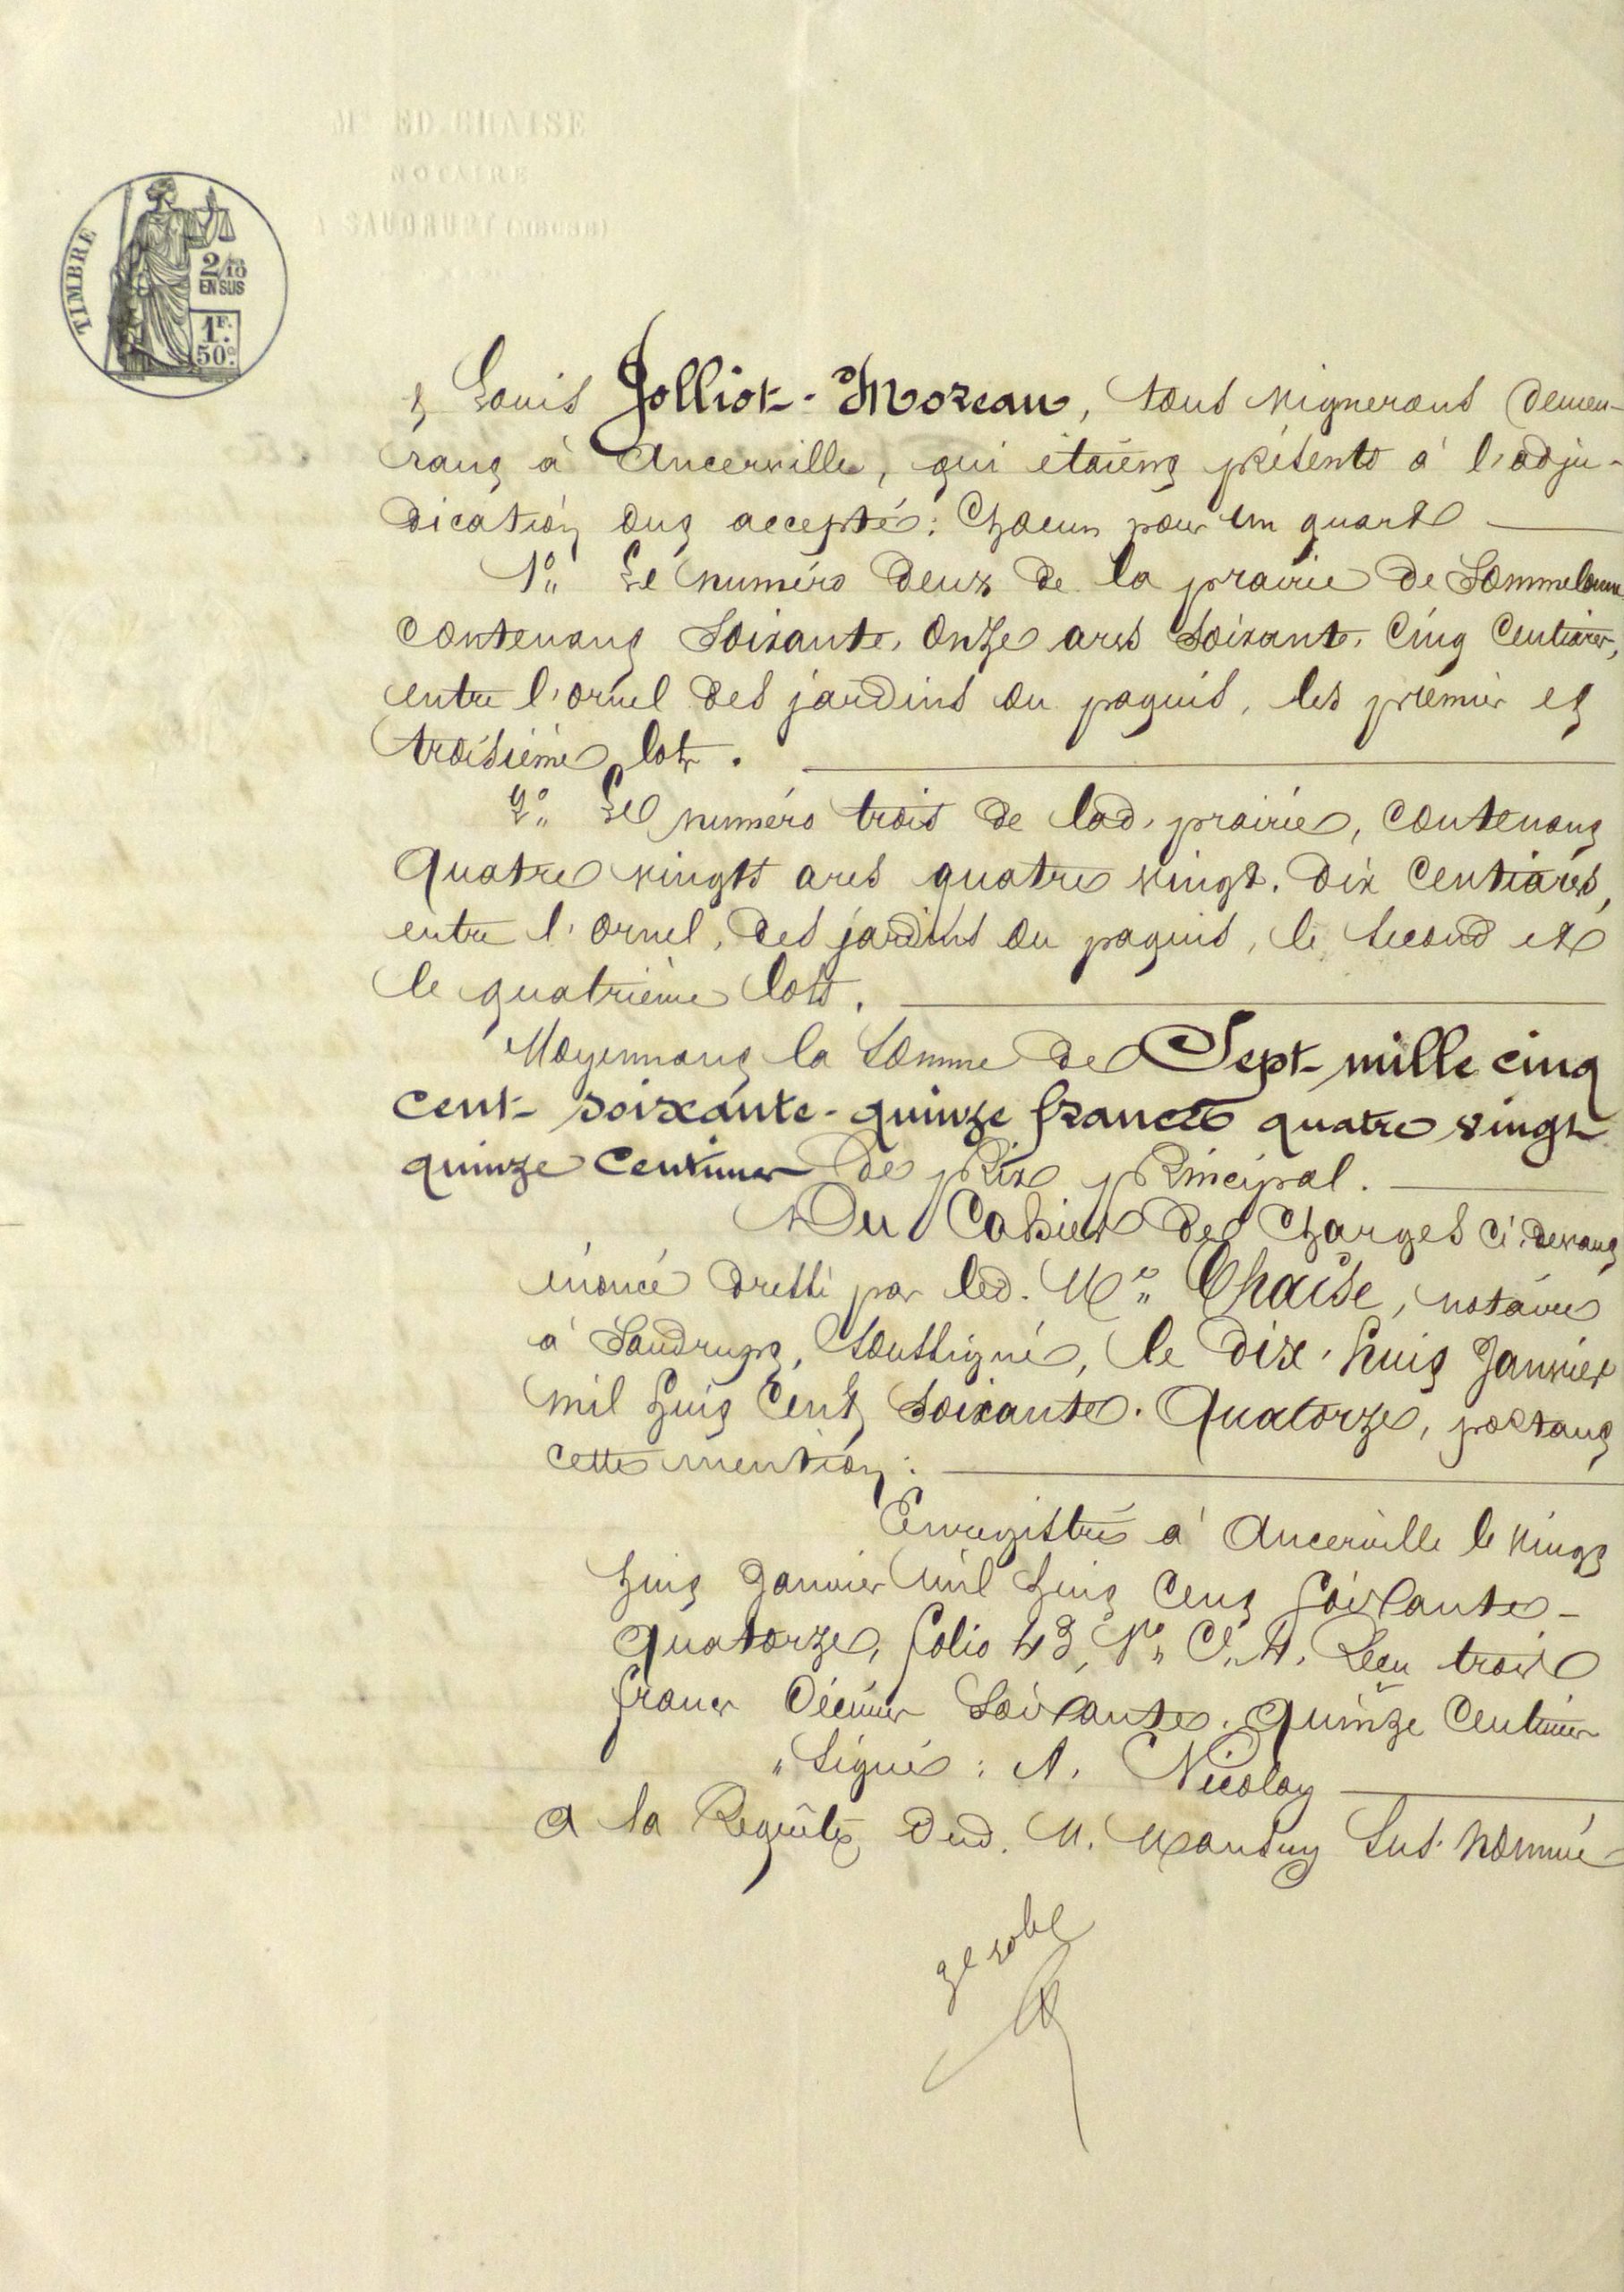 Me ED. CHAISE
NOTAIRE
A SAUDRUPT (MEUSE)
TIMBRE
2/10
EN SUS
1F.
50c.
& Louis Jolliot-Moreau, tous vignerons demeu-
rant à Ancerville, qui étaient présents à l'adju-
dication ont accepté: Chacun pour un quart
1°" Le numéro deux de la prairie de Sommelonne
contenant soixante-onze ares soixante-cinq centiares,
entre l'ornel des jardins du paquis, les premier et
troisième lots.
2°" Le numéro trois de lad. prairie, contenant
quatre vingts ares quatre vingt-dix centiares,
entre l'ornel, des jardins du paquis, le second et
le quatrième lots.
Moyennant la somme de Sept mille cinq
cent soixante-quinze francs quatre vingt
quinze centimes de prix principal.
Du Cahier des Charges ci-devant
énoncé dressé par led. Me" Chaise, notaire
à Saudrupt, soussigné, le dix-huit Janvier
mil huit cent soixante-quatorze, portant
cette mention:
Enregistré à Ancerville le vingt
huit Janvier mil huit cent soixante-
quatorze, folio 43, Vo" C. 4. Reçu trois
francs Décimes soixante-quinze centimes
" Signé: A. Nicolay
A la Requête dud. M. Mansuy sus-nommé